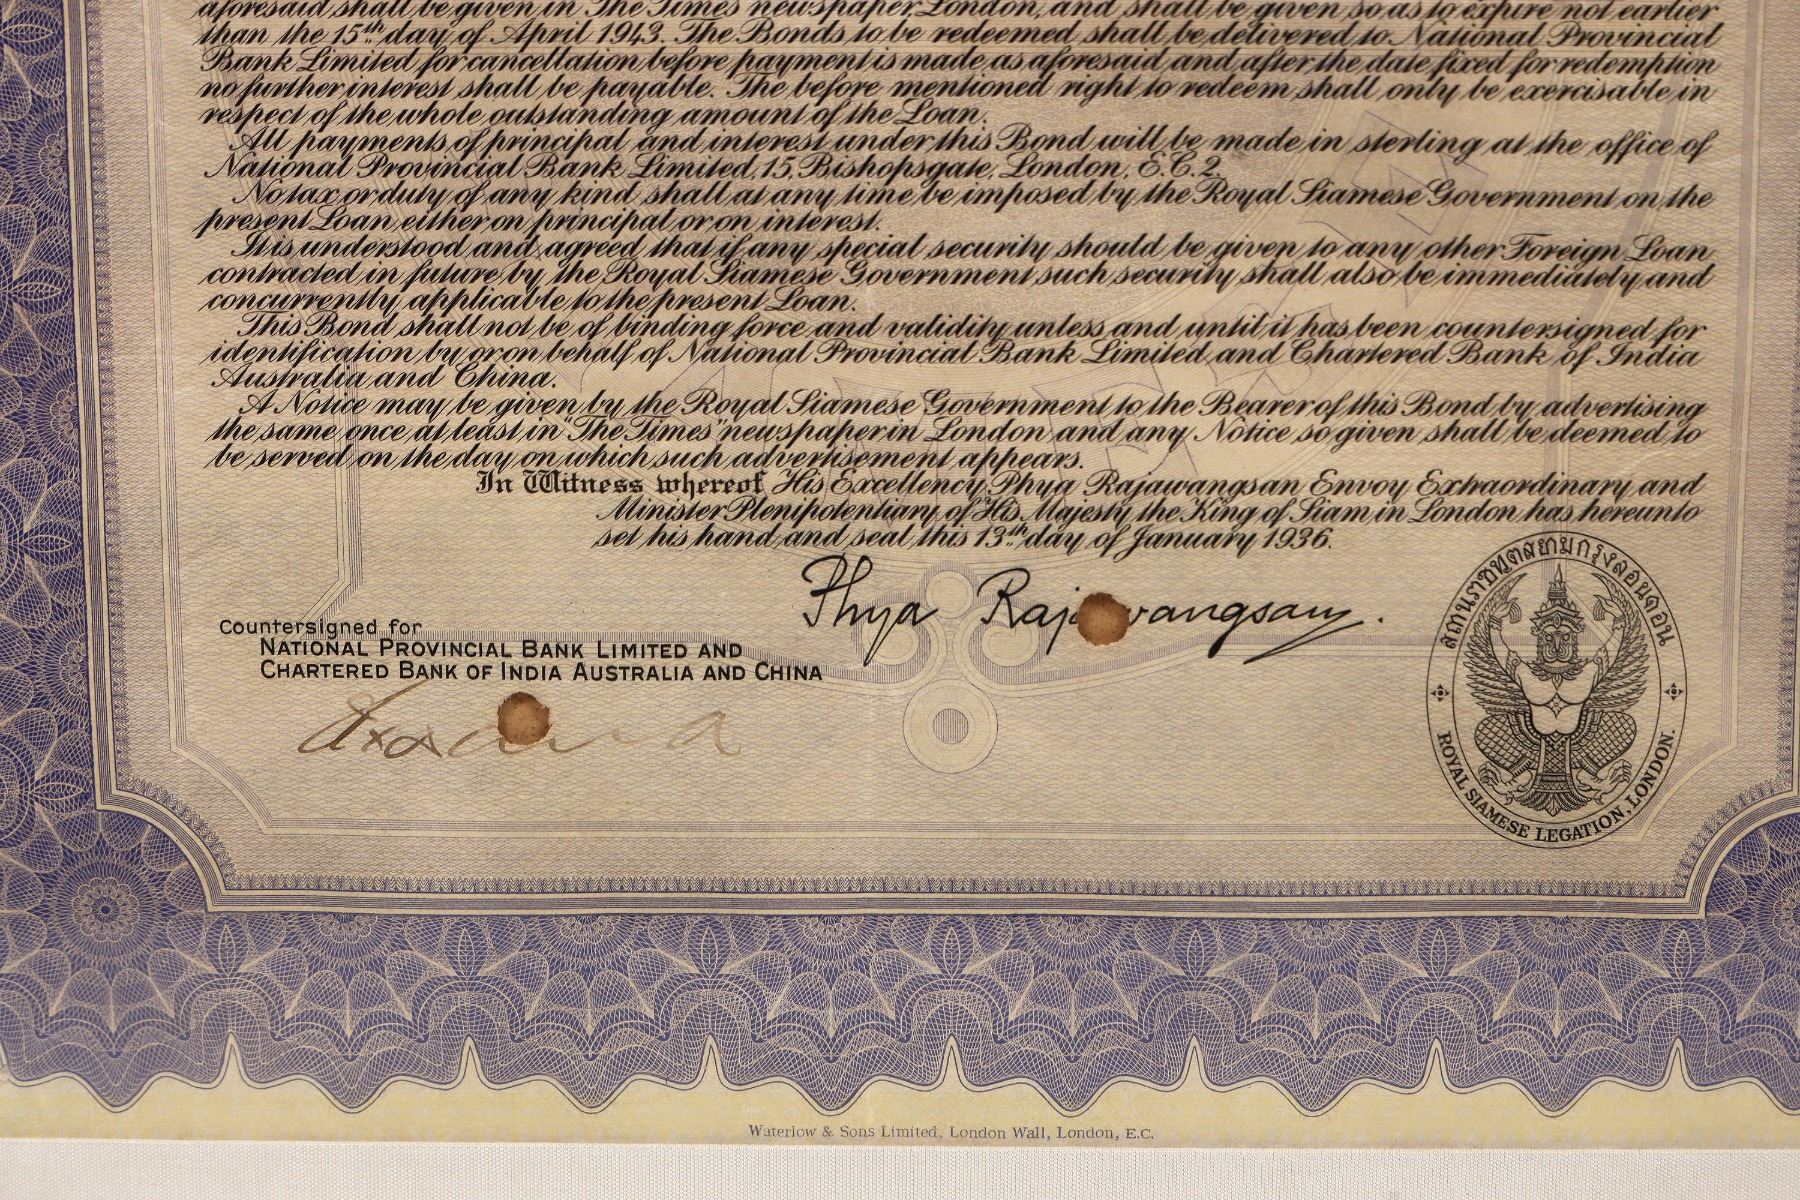 aforesaid shall be given in The Times newspaper London, and shall be given so as to expire not earlier
than the 15th day of April 1943. The Bonds to be redeemed shall be delivered to National Provincial
Bank Limited for cancellation before payment is made as aforesaid and after the date fixed for redemption
no further interest shall be payable. The before mentioned right to redeem shall only be exercisable in
respect of the whole outstanding amount of the Loan.
All payments of principal and interest under this Bond will be made in sterling at the office of
National Provincial Bank Limited, 15, Bishopsgate, London, E.C.2.
No tax or duty of any kind shall at any time be imposed by the Royal Siamese Government on the
present Loan either on principal or on interest.
It is understood and agreed that if any special security should be given to any other Foreign Loan
contracted in future by the Royal Siamese Government such security shall also be immediately and
concurrently applicable to the present Loan.
This Bond shall not be of binding force and validity unless and until it has been countersigned for
identification by or on behalf of National Provincial Bank Limited and Chartered Bank of India
Australia and China.
A Notice may be given by the Royal Siamese Government to the Bearer of this Bond by advertising
the same once at least in "The Times" newspaper in London and any Notice so given shall be deemed to
be served on the day on which such advertisement appears.
In Witness whereof His Excellency Phya Rajawangsan Envoy Extraordinary and
Minister Plenipotentiary of His Majesty the King of Siam in London has hereunto
set his hand and seal this 13th day of January 1936.
Phya Rajawangsan.
Countersigned for
NATIONAL PROVINCIAL BANK LIMITED AND
CHARTERED BANK OF INDIA AUSTRALIA AND CHINA
สถานราชทูตสยามกรุงลอนดอน
ROYAL SIAMESE LEGATION, LONDON.
Waterlow & Sons Limited, London Wall, London, E.C.